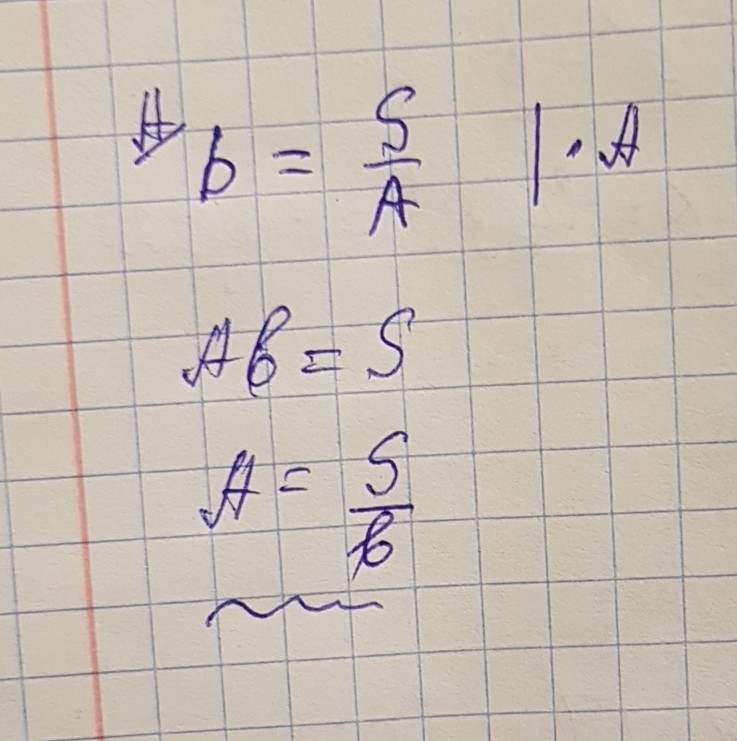 b = S/A | · A
Ab = S
A = S/b